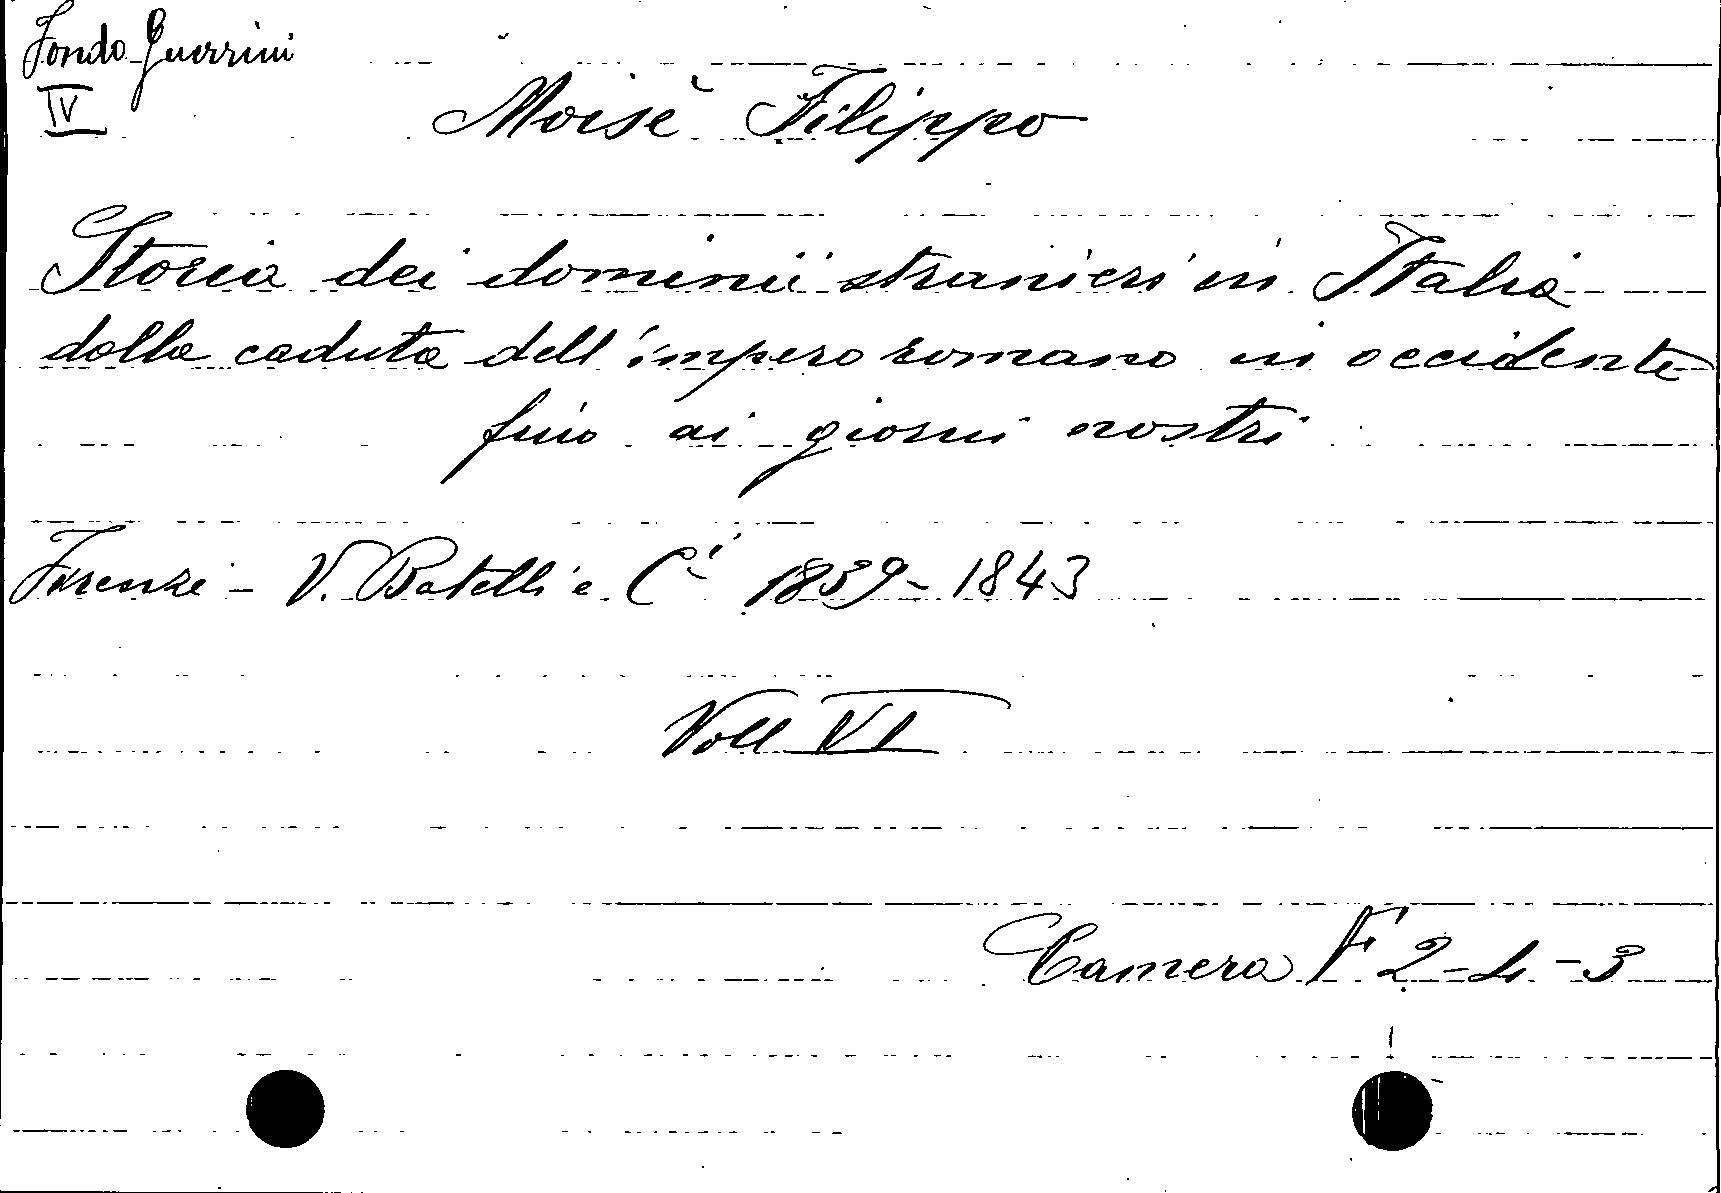 Fondo Guerrini
IV
Moisè Filippo
Storia dei dominii stranieri in Italia
dalla caduta dell'impero romano in occidente
fino ai giorni nostri
Firenze - V. Batelli e Ci 1839-1843
Voll VI
Camera F 2-4-3